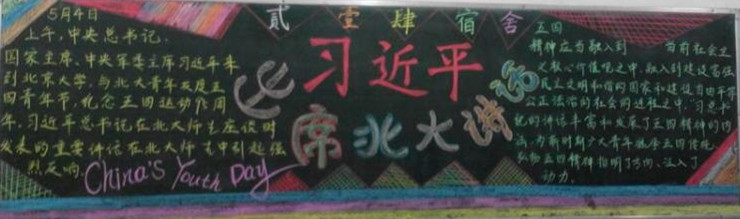 5月4日
上午,中央总书记、
国家主席、中央军委主席习近平来
到北京大学,与北大青年
四青年节,纪念五四运动
年,习近平总书记在北大师生座谈时
发表的重要讲话在北大师生中引起强
烈反响.
China's Youth Day
贰壹肆宿舍
习近平
出席北大讲话
五四
精神应当融入到 当前社会主
义核心价值观之中,融入到建设富强
民主文明和谐的国家和建设自由平等
公正法治的社会的进程之中."习总书
记的讲话丰富和发展了五四精神的内
涵,为新时期广大青年继承五四传统,
弘扬五四精神指明了方向,注入了
动力.